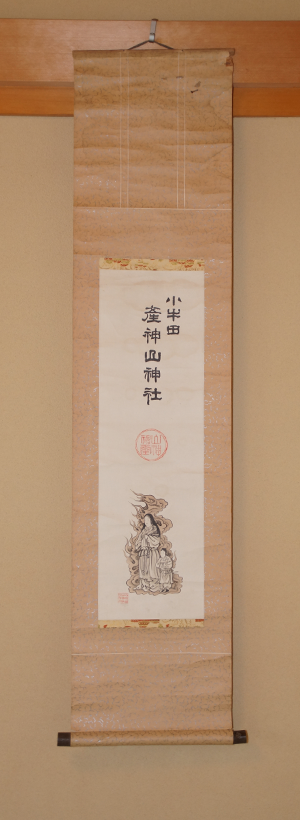 小牛田
産神山神社